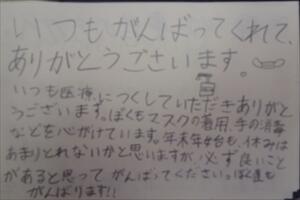 いつもがんばってくれて、
ありがとうございます。
いつも医療につくしていただきありがと
うございます。ぼくもマスクの着用、手の消毒
などを心がけています。年末年始も、休みは
あまりとれないかと思いますが、必ず良いこと
があると思ってがんばってください。ぼく達も
がんばります!!